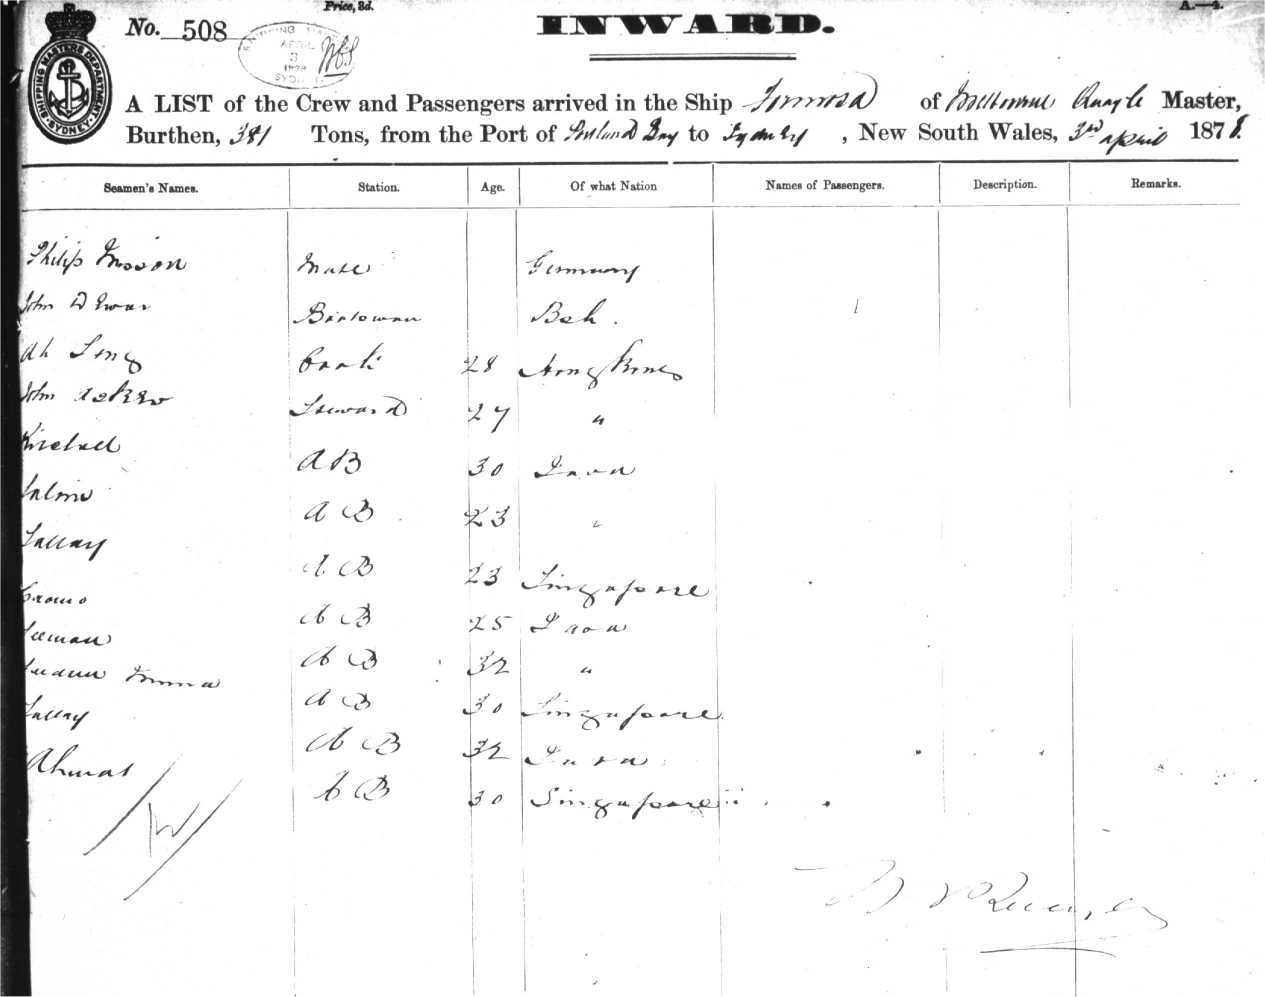 Price, 3d.
A.—4.
No. 508
INWARD.
SHIPPING MASTERS DEPARTMENT SYDNEY
APRIL
3
1878
SYDNEY
A LIST of the Crew and Passengers arrived in the Ship Formosa of Melbourne Quayle Master,
Burthen, 381 Tons, from the Port of Portland Bay to Sydney, New South Wales, 3rd april 1878.
Seamen's Names. Station. Age. Of what Nation Names of Passengers. Description. Remarks.
Philip Mate Germany
John Dewar Boatswain
Ah Cook 28 Hong Kong
John Askew Steward 27 "
AB 30 Java
Salim AB 23 "
Sallay AB 23 Singapore
AB 25 Java
AB 32 "
AB 30 Singapore
Sallay AB 32 Java
Ahmat AB 30 Singapore
Quayle